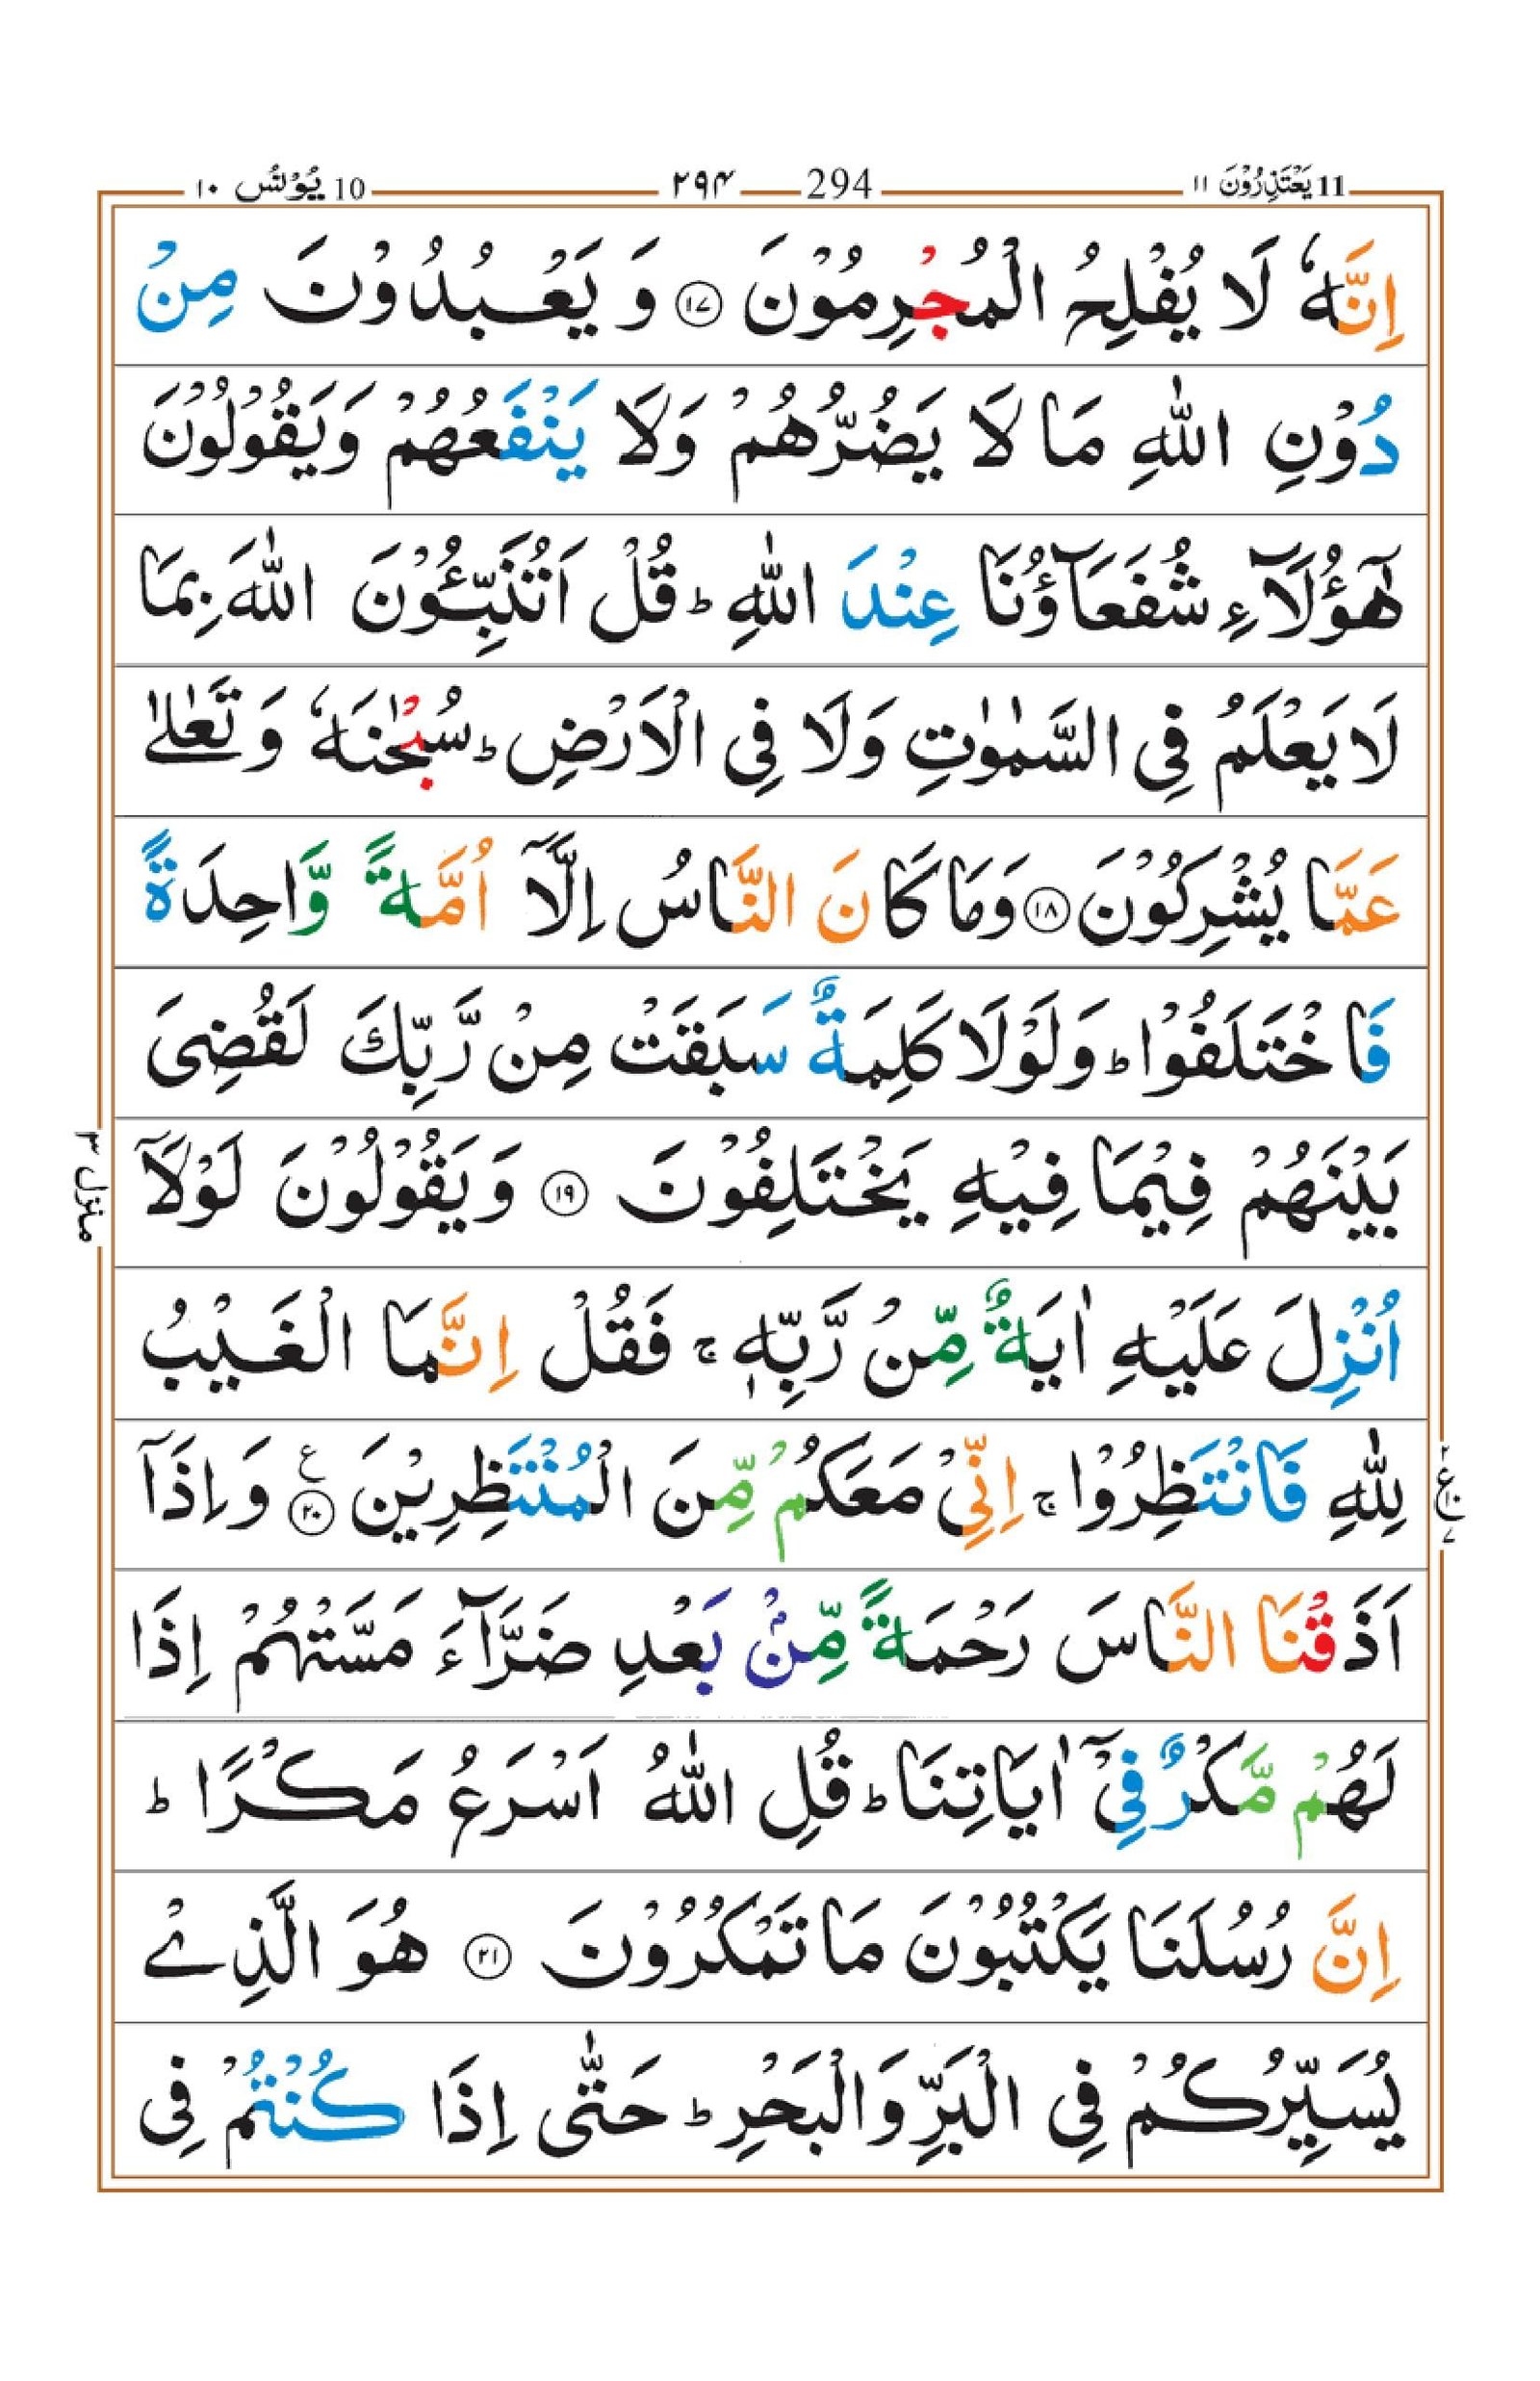 11 یَعْتَذِرُوْنَ ۱۱
294 ۲۹۴
10 یُوْنُس ۱۰
اِنَّهٗ لَا یُفْلِحُ الْمُجْرِمُوْنَ ﴿۱۷﴾ وَ یَعْبُدُوْنَ مِنْ
دُوْنِ اللّٰهِ مَا لَا یَضُرُّهُمْ وَلَا یَنْفَعُهُمْ وَیَقُوْلُوْنَ
هٰۤؤُلَآءِ شُفَعَآؤُنَا عِنْدَ اللّٰهِ ؕ قُلْ اَتُنَبِّـُٔوْنَ اللّٰهَ بِمَا
لَا یَعْلَمُ فِی السَّمٰوٰتِ وَلَا فِی الْاَرْضِ ؕ سُبْحٰنَهٗ وَ تَعٰلٰی
عَمَّا یُشْرِكُوْنَ ﴿۱۸﴾ وَمَا كَانَ النَّاسُ اِلَّاۤ اُمَّةً وَّاحِدَةً
فَاخْتَلَفُوْا ؕ وَلَوْلَا كَلِمَةٌ سَبَقَتْ مِنْ رَّبِّكَ لَقُضِیَ
بَیْنَهُمْ فِیْمَا فِیْهِ یَخْتَلِفُوْنَ ﴿۱۹﴾ وَیَقُوْلُوْنَ لَوْلَاۤ
اُنْزِلَ عَلَیْهِ اٰیَةٌ مِّنْ رَّبِّهٖ ۚ فَقُلْ اِنَّمَا الْغَیْبُ
لِلّٰهِ فَانْتَظِرُوْا ۚ اِنِّیْ مَعَكُمْ مِّنَ الْمُنْتَظِرِیْنَ ﴿۲۰﴾ ع وَاِذَاۤ
اَذَقْنَا النَّاسَ رَحْمَةً مِّنْۢ بَعْدِ ضَرَّآءَ مَسَّتْهُمْ اِذَا
لَهُمْ مَّكْرٌ فِیْۤ اٰیَاتِنَا ؕ قُلِ اللّٰهُ اَسْرَعُ مَكْرًا ؕ
اِنَّ رُسُلَنَا یَكْتُبُوْنَ مَا تَمْكُرُوْنَ ﴿۲۱﴾ هُوَ الَّذِیْ
یُسَیِّرُكُمْ فِی الْبَرِّ وَالْبَحْرِ ؕ حَتّٰۤی اِذَا كُنْتُمْ فِی
منزل ۳
۲
ع ۱۰
۷